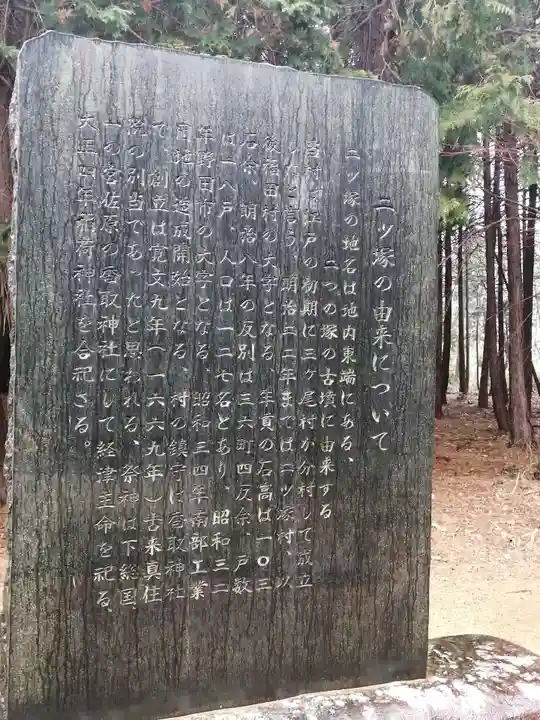 二ツ塚の由来について
二ツ塚の地名は地内東端にある、
二つの塚の古墳に由来する
当村は江戸の初期に三ヶ尾村から分村して成立
したと言う、明治二二年までは二ツ塚村、以
後福田村の大字となる、年貢の石高は一〇三
石余、明治八年の反別は三六町四反余、戸数
は一八戸、人口は一二七名とあり、昭和三二
年野田市の大字となる、昭和三四年南部工業
団地の造成開始となる、村の鎮守は香取神社
で、創立は寛文九年(一六六九年)古来真住
院の別当であったと思われる、祭神は下総国
一の宮佐原の香取神社にして経津主命を祀る、
大正四年稲荷神社を合祀さる。